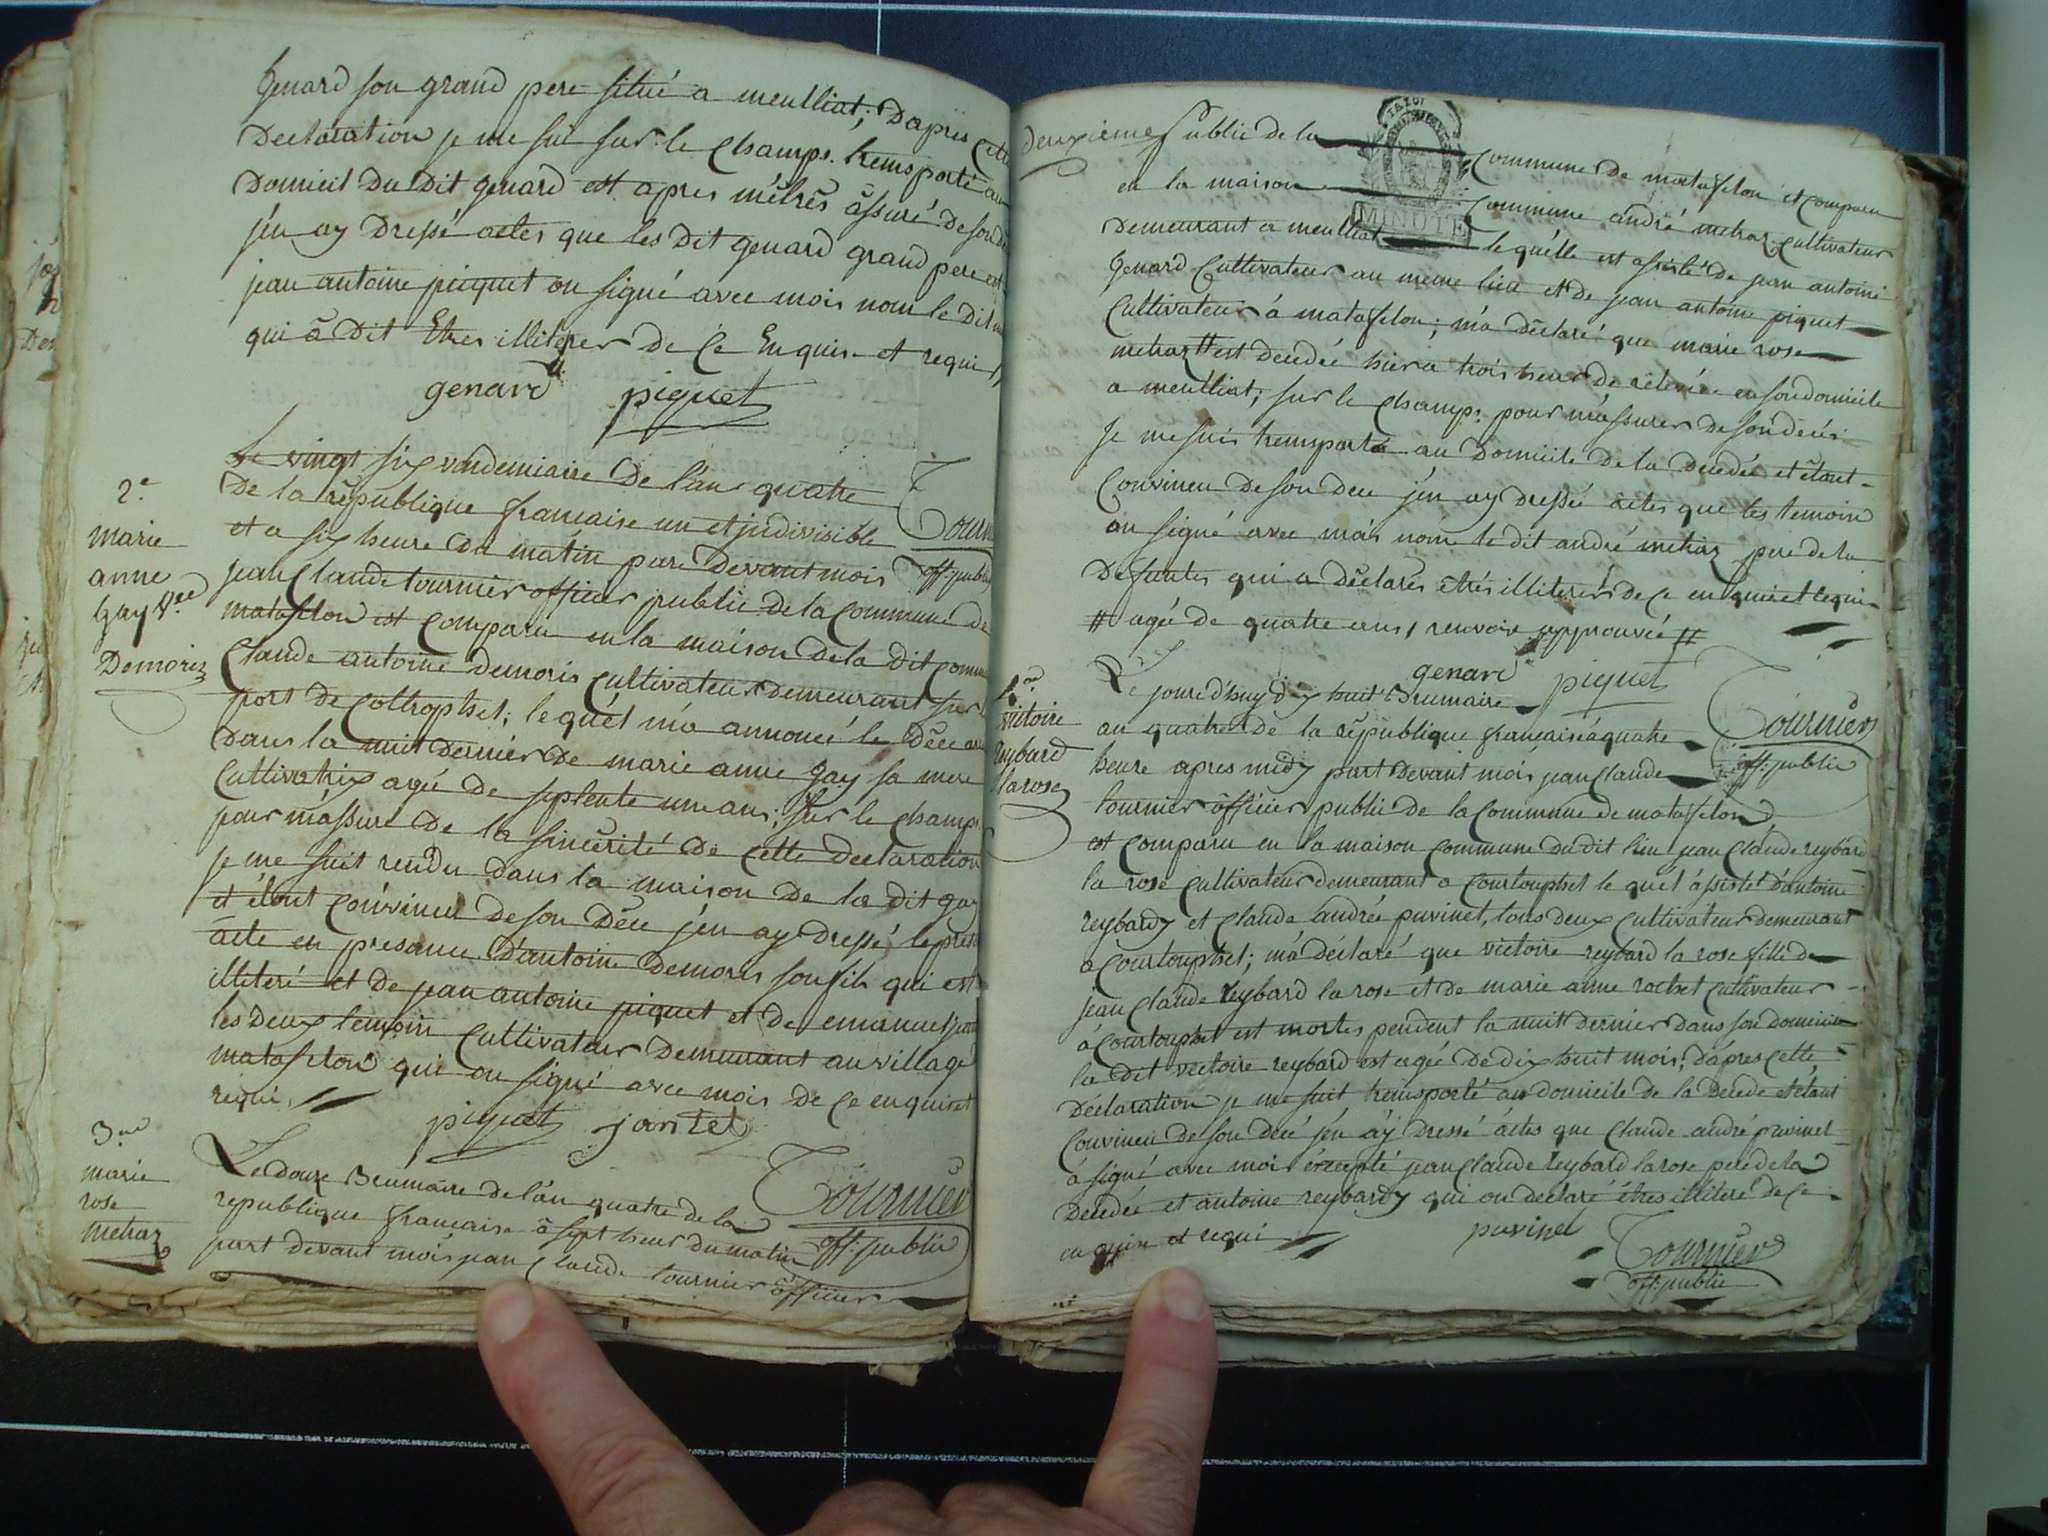 genard son grand pere situé a meulliat; Daprès cette
Declaration je me sui sur le champs. transporté au
Domicil Du Dit genard est apres m'êtres âssuré de son
j'en ay Dressé actes que les Dit genard grand pere et
jean antoine picquet on signé avec mois nom le Dit
qui â Dit Etres illiterer De Ce Enquis et requis
genard piquet
2.e
marie
anne
gay V.ee
Demoriz
Le vingt six vendemiaire De l'an quatre
De la rêpublique francaise un et jndivisible
et a six heure Du matin pare Devant mois
jean Claude tournier officier public de la Commune de
matafelon est comparu en la maison De la Dit
Claude antoine Demoris Cultivateur Demeurant sur
port de Cottrophet; le quel m'a annoncé le Déce
Dans la nuit Dernier De marie anne gay sa mere
Cultivatrix agé De septente une ans; sur le champs
pour m'assure De la sincérité De cette Declaration
je me suit rendu Dans la maison De la Dit gay
et étant convincu De son Déce j'en ay Dressé le
acte en presance D'antoine Demoris son fils qui est
illiteré et De jean antoine piquet et de emanuel
les Deux temoin Cultivateur Demeurant au village
matafelon qui on signé avec mois De Ce enquis et
requi
piquet jantet
Tournier
off. public
3.me
marie
rose
metraz
Le Douze Brumaire De l'an quatre de la
republique francaise â sept heur Du matin
part devant mois jean Claude tournier ôfficier
deuxième
Public de la Commune de matafelon est comparu
en la maison Commune andré metraz Cultivateur
Demeurant a meulliat le quelle est assisté De jean antoine
genard Cultivateur au meme lieu et de jean antoine piquet
Cultivateur á matafelon; m'a Déclaré que marie rose
metraz # est decedée hier a trois heur de relevée en son domicile
a meulliat; sur le champs pour m'assurer de son decés
je me suis transporté au Domicile de la Decedée et êtant
Convincu De son Dece j'en ay Dressé actes que les temoin
on signé avec mois nom le dit andré metraz pere de la
Defuntes qui a Déclarés étrés illiterer de ce enquis et requi
# agée de quatre ans, renvoie approuvée #
genard piquet
Tournier
off. public
4.me
victoire
reybard
la rose
Le jourd'huy dix huit Brumaire
an quatre De la république francaise á quatre
heure apres midy part devant mois jean Claude
tournier ôfficier public de la Commune de matafelon
est comparu en la maison commune du dit lieu jean Claude reybard
la rose Cultivateur demeurant a courtouphet le quel assistet d'antoine
reybard et Claude andrée puvinet, tous deux Cultivateur Demeurant
a Courtouphet; m'a déclaré que victoire reybard la rose fille de
jean Claude reybard la rose et de marie anne rochet Cultivateur
á Courtouphet est mortes pendent la nuit dernier dans son domicile
la dit victoire reybard est agée de dix huit mois; D'apres cette
Déclaration je me suit transporté au domicile de la Decede et étant
Convincu De son Decé j'en ay Dressé áctes que Claude andré puvinet
á signé avec mois excepté jean Claude reybard la rose pere de la
Decedée et antoine reybard qui on declaré êtres illiteré de ce
enquis et requi
puvinet
Tournier
off. public
MINUTE